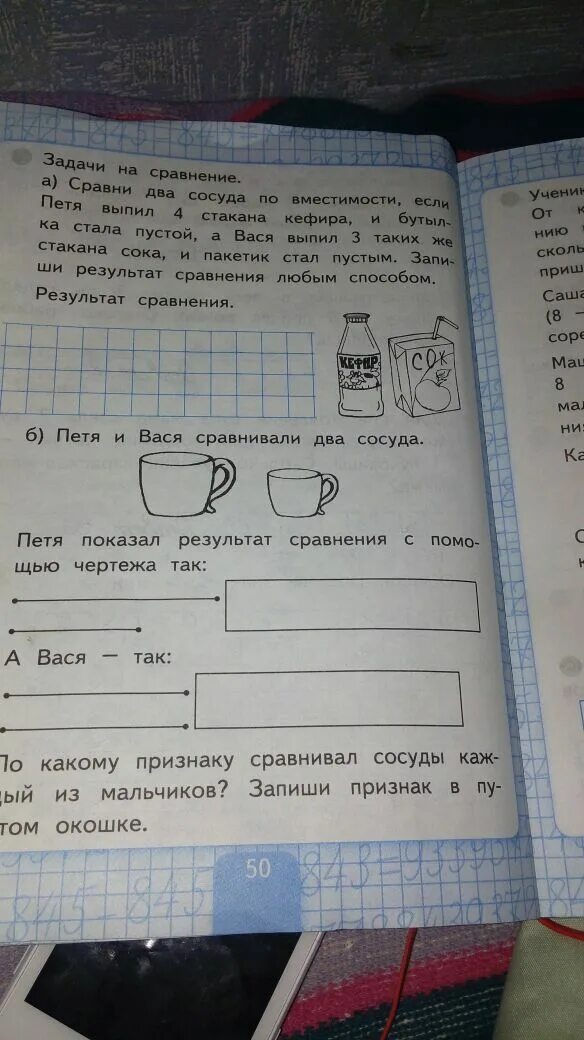 Задачи на сравнение.
а) Сравни два сосуда по вместимости, если
Петя выпил 4 стакана кефира, и бутыл-
ка стала пустой, а Вася выпил 3 таких же
стакана сока, и пакетик стал пустым. Запи-
ши результат сравнения любым способом.
Результат сравнения.
КЕФИР
СОК
б) Петя и Вася сравнивали два сосуда.
Петя показал результат сравнения с помо-
щью чертежа так:
А Вася — так:
По какому признаку сравнивал сосуды каж-
дый из мальчиков? Запиши признак в пу-
том окошке.
50
845 - 845
843=93390
Учени
От к
нию
сколь
приш
Саша
(8 –
соре
Маш
8
мал
ния
Ка
С
к